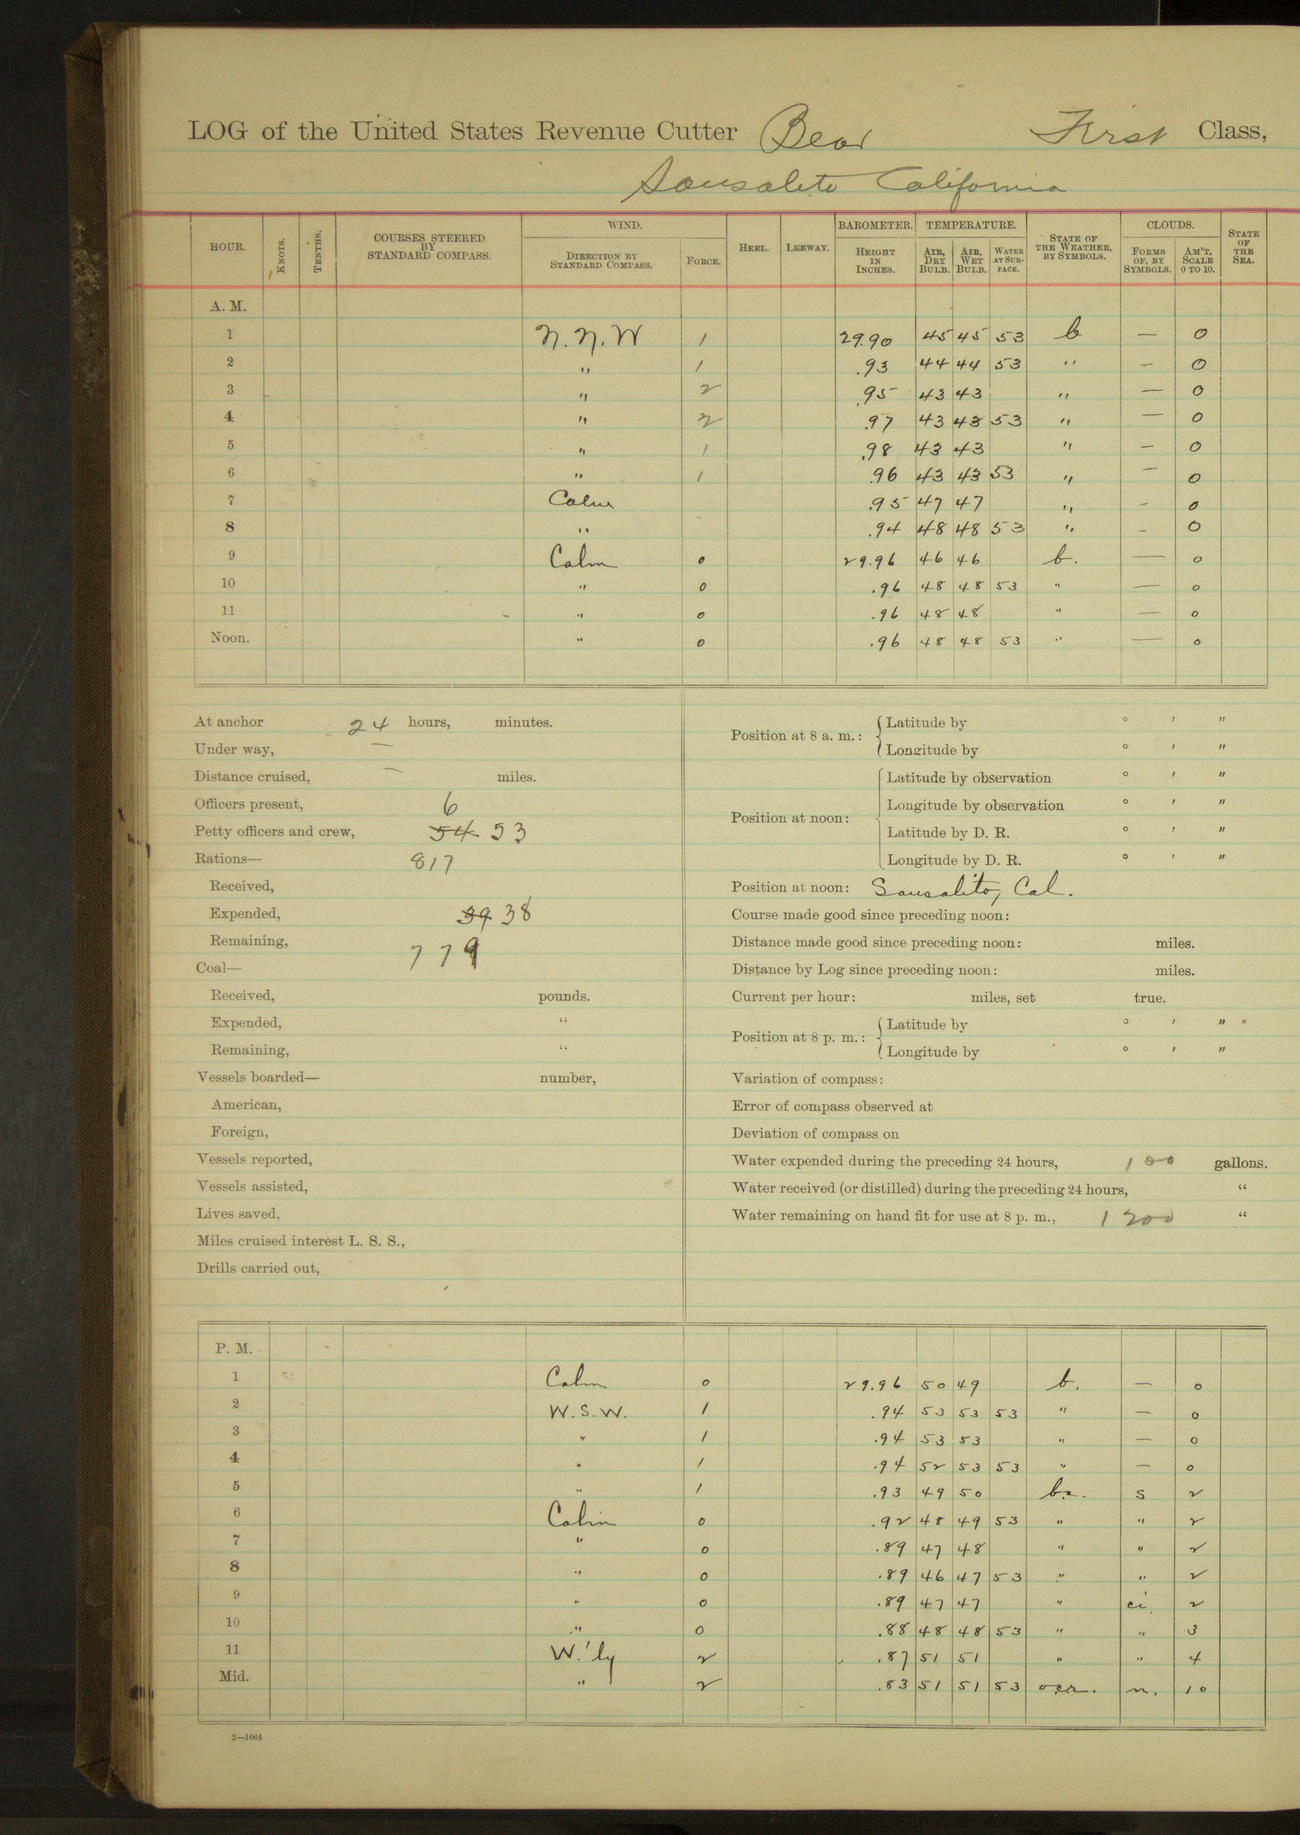 LOG of the United States Revenue Cutter Bear First Class,
Sausalito California
HOUR. KNOTS. TENTHS. COURSES STEERED BY STANDARD COMPASS. WIND. DIRECTION BY STANDARD COMPASS. FORCE. HEEL. LEEWAY. BAROMETER. HEIGHT IN INCHES. TEMPERATURE. AIR, DRY BULB. AIR, WET BULB. WATER AT SURFACE. STATE OF THE WEATHER, BY SYMBOLS. CLOUDS. FORMS OF, BY SYMBOLS. AM'T, SCALE 0 TO 10. STATE OF THE SEA.
A. M.
1 N.N.W 1 29.90 45 45 53 b — 0
2 " 1 .93 44 44 53 " — 0
3 " 2 .95 43 43 " — 0
4 " 2 .97 43 43 53 " — 0
5 " 1 .98 43 43 " — 0
6 " 1 .96 43 43 53 " — 0
7 Calm .95 47 47 " — 0
8 " .94 48 48 53 " — 0
9 Calm 0 29.96 46 46 b. — 0
10 " 0 .96 48 48 53 " — 0
11 " 0 .96 48 48 " — 0
Noon. " 0 .96 48 48 53 " — 0
At anchor 24 hours, minutes.
Under way, —
Distance cruised, — miles.
Officers present, 6
Petty officers and crew, 54 53
Rations— 817
Received,
Expended, 39 38
Remaining, 779
Coal—
Received, pounds.
Expended, "
Remaining, "
Vessels boarded— number,
American,
Foreign,
Vessels reported,
Vessels assisted,
Lives saved,
Miles cruised interest L. S. S.,
Drills carried out,
Position at 8 a. m.: Latitude by ° ′ ″
Longitude by ° ′ ″
Position at noon: Latitude by observation ° ′ ″
Longitude by observation ° ′ ″
Latitude by D. R. ° ′ ″
Longitude by D. R. ° ′ ″
Position at noon: Sausalito, Cal.
Course made good since preceding noon:
Distance made good since preceding noon: miles.
Distance by Log since preceding noon: miles.
Current per hour: miles, set true.
Position at 8 p. m.: Latitude by ° ′ ″
Longitude by ° ′ ″
Variation of compass:
Error of compass observed at
Deviation of compass on
Water expended during the preceding 24 hours, 100 gallons.
Water received (or distilled) during the preceding 24 hours, "
Water remaining on hand fit for use at 8 p. m., 1200 "
P. M.
1 Calm 0 29.96 50 49 b. — 0
2 W.S.W. 1 .94 53 53 53 " — 0
3 " 1 .94 53 53 " — 0
4 " 1 .94 52 53 53 " — 0
5 " 1 .93 49 50 bc. s 2
6 Calm 0 .92 48 49 53 " " 2
7 " 0 .89 47 48 " " 2
8 " 0 .89 46 47 53 " " 2
9 " 0 .89 47 47 " ci. 2
10 " 0 .88 48 48 53 " " 3
11 W.'ly 2 .87 51 51 " " 4
Mid. " 2 .83 51 51 53 ocr. n. 10
2—1664